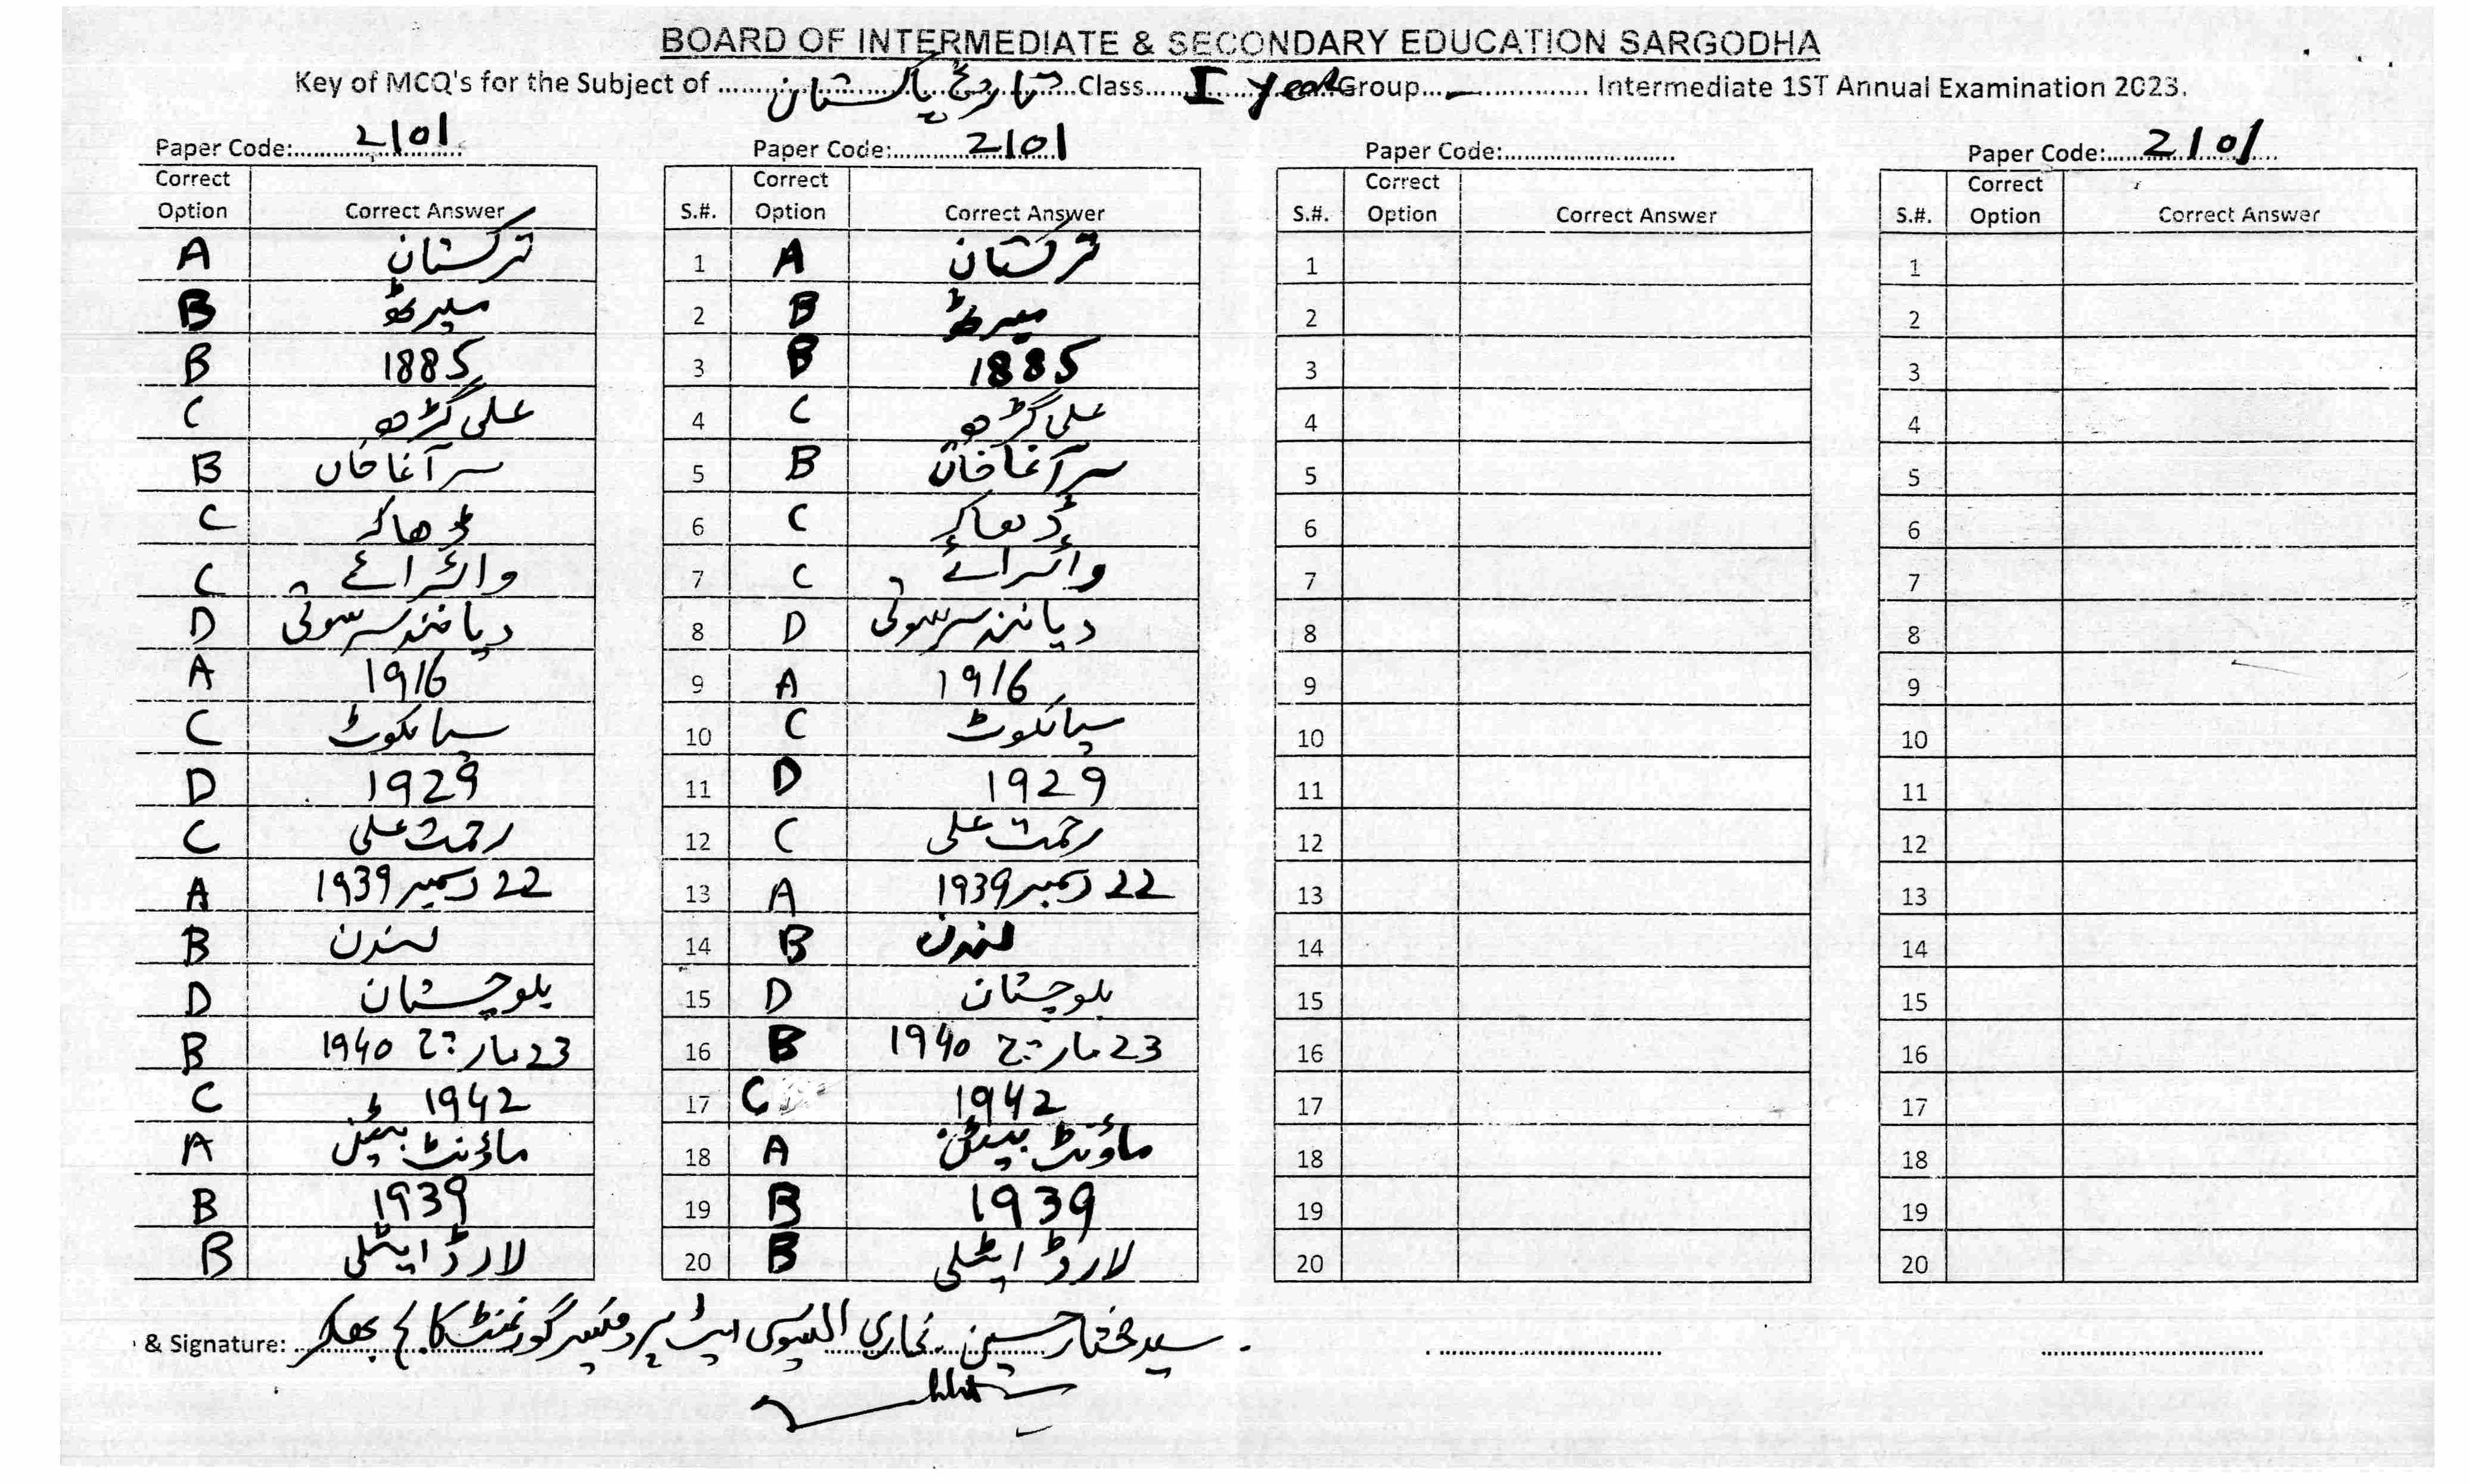 BOARD OF INTERMEDIATE & SECONDARY EDUCATION SARGODHA
Key of MCQ's for the Subject of تاریخ پاکستان Class I year Group — Intermediate 1ST Annual Examination 2023.
Paper Code: 2101 Paper Code: 2101 Paper Code: Paper Code: 2101
Correct Option Correct Answer S.#. Correct Option Correct Answer S.#. Correct Option Correct Answer S.#. Correct Option Correct Answer
A ترکستان 1 A ترکستان 1 1
B میرٹھ 2 B میرٹھ 2 2
B 1885 3 B 1885 3 3
C علی گڑھ 4 C علی گڑھ 4 4
B سر آغا خاں 5 B سر آغا خان 5 5
C ڈھاکہ 6 C ڈھاکہ 6 6
C وائسرائے 7 C وائسرائے 7 7
D دیانند سرسوتی 8 D دیانند سرسوتی 8 8
A 1916 9 A 1916 9 9
C سیالکوٹ 10 C سیالکوٹ 10 10
D 1929 11 D 1929 11 11
C رحمت علی 12 C رحمت علی 12 12
A 22 دسمبر 1939 13 A 22 دسمبر 1939 13 13
B لندن 14 B لندن 14 14
D بلوچستان 15 D بلوچستان 15 15
B 23 مارچ 1940 16 B 23 مارچ 1940 16 16
C 1942 17 C 1942 17 17
A ماؤنٹ بیٹن 18 A ماؤنٹ بیٹن 18 18
B 1939 19 B 1939 19 19
B لارڈ ایٹلی 20 B لارڈ ایٹلی 20 20
& Signature: سید مختار حسین بخاری ایسوسی ایٹ پروفیسر گورنمنٹ کالج بھکر